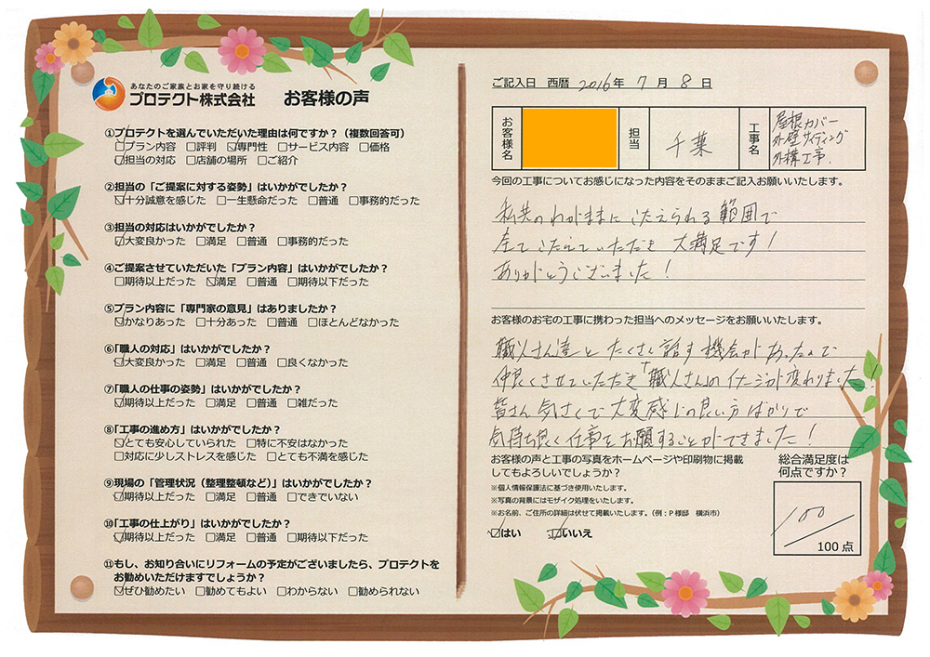 あなたのご家族とお家を守り続ける
プロテクト株式会社
お客様の声
①プロテクトを選んでいただいた理由は何ですか?(複数回答可)
☑プラン内容 □評判 ☑専門性 □サービス内容 □価格
☑担当の対応 □店舗の場所 □ご紹介
②担当の「ご提案に対する姿勢」はいかがでしたか?
☑十分誠意を感じた □一生懸命だった □普通 □事務的だった
③担当の対応はいかがでしたか?
☑大変良かった □満足 □普通 □事務的だった
④ご提案させていただいた「プラン内容」はいかがでしたか?
□期待以上だった ☑満足 □普通 □期待以下だった
⑤プラン内容に「専門家の意見」はありましたか?
☑かなりあった □十分あった □普通 □ほとんどなかった
⑥「職人の対応」はいかがでしたか?
☑大変良かった □満足 □普通 □良くなかった
⑦「職人の仕事の姿勢」はいかがでしたか?
☑期待以上だった □満足 □普通 □雑だった
⑧「工事の進め方」はいかがでしたか?
☑とても安心していられた □特に不安はなかった
□対応に少しストレスを感じた □とても不満を感じた
⑨現場の「管理状況(整理整頓など)」はいかがでしたか?
☑期待以上だった □満足 □普通 □できていない
⑩「工事の仕上がり」はいかがでしたか?
☑期待以上だった □満足 □普通 □期待以下だった
⑪もし、お知り合いにリフォームの予定がございましたら、プロテクトを
お勧めいただけますでしょうか?
☑ぜひ勧めたい □勧めてもよい □わからない □勧められない
ご記入日 西暦 2016年 7月 8日
お客様名
担当
千葉
工事名
屋根カバー
外壁サイディング
外構工事.
今回の工事についてお感じになった内容をそのままご記入お願いいたします。
私共のわがままにこたえられる範囲で
全てこたえていただき 大満足です!
ありがとうございました!
お客様のお宅の工事に携わった担当へのメッセージをお願いいたします。
職人さん達とたくさん話す機会があったので
仲良くさせていただき「職人さん」のイメージが変わりました。
皆さん気さくで大変感じの良い方ばかりで
気持ち良く仕事をお願することができました!
お客様の声と工事の写真をホームページや印刷物に掲載
してもよろしいでしょうか?
※個人情報保護法に基づき使用いたします。
※写真の背景にはモザイク処理をいたします。
※お名前、ご住所の詳細は伏せて掲載いたします。(例:P様邸 横浜市)
☑はい ☑いいえ
総合満足度は
何点ですか?
100
100点